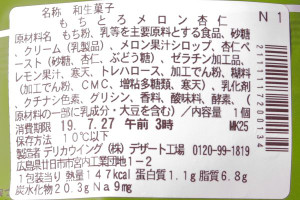 名称 和生菓子
もちとろメロン杏仁
N1
原材料名 もち粉、乳等を主要原料とする食品、砂糖
、クリーム(乳製品)、メロン果汁シロップ、杏仁ペー
スト(砂糖、杏仁、ぶどう糖)、ゼラチン加工品、
レモン果汁、寒天、トレハロース、加工でん粉、糊料
(加工でん粉、CMC、増粘多糖類、寒天)、乳化剤
、クチナシ色素、グリシン、香料、酸味料、酵素、(
原材料の一部に乳成分・大豆を含む)/内容量 1個
消費期限 19. 7.27 午前 3時 MK25
保存方法 10℃以下
製造者 デリカウイング(株) デザート工場 0120-99-1819
広島県廿日市市宮内工業団地1-2
1包装当り 熱量147kcal 蛋白質1.1g 脂質6.8g
炭水化物20.3g Na9mg